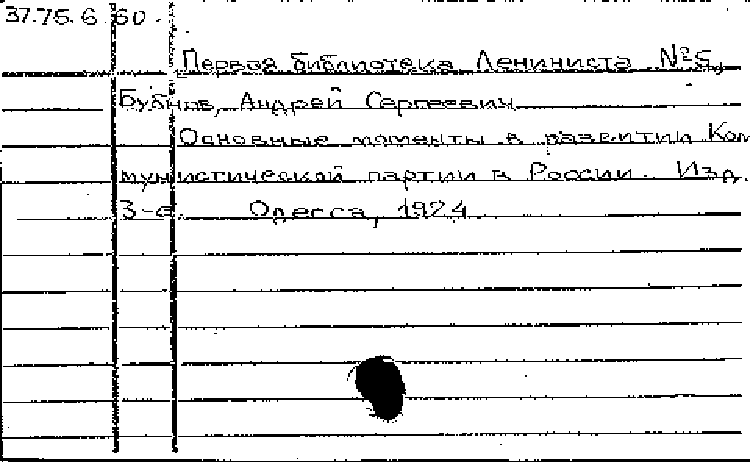 37.75.6 60.
Первая библиотека Лениниста №5,
Бубнов, Андрей Сергеевич
Основные моменты в развитии Ком
мунистической партии в России. Изд.
3-е Одесса, 1924